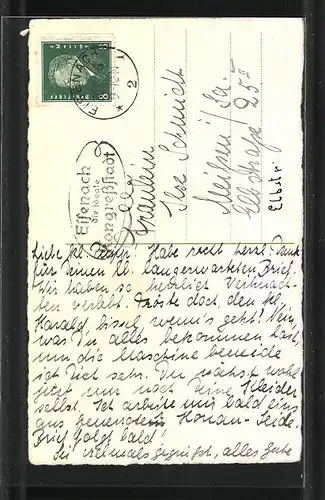 EISENACH
1
2
8 8
Eisenach
die ideale
Kongreßstadt
Fräulein
Ilse Schmidt
Meißen / Sa.
Elbstraße 25 II
Elbstr.
Liebe Habe recht herzl. Dank
für Deinen lb. langerwarteten Brief.
Wir haben so herrlich Weihnach-
ten verlebt. Tröste doch den kl.
Harald, bissel, wenn's geht! Nein
was Du alles bekommen hast,
um die Maschine beneide
ich Dich sehr. Du nähst wohl
jetzt nur noch Deine Kleider
selbst. Ich arbeite mir bald eins
aus Honan-Seide.
Brief folgt bald!
Sei vielmals gegrüßt, alles Gute